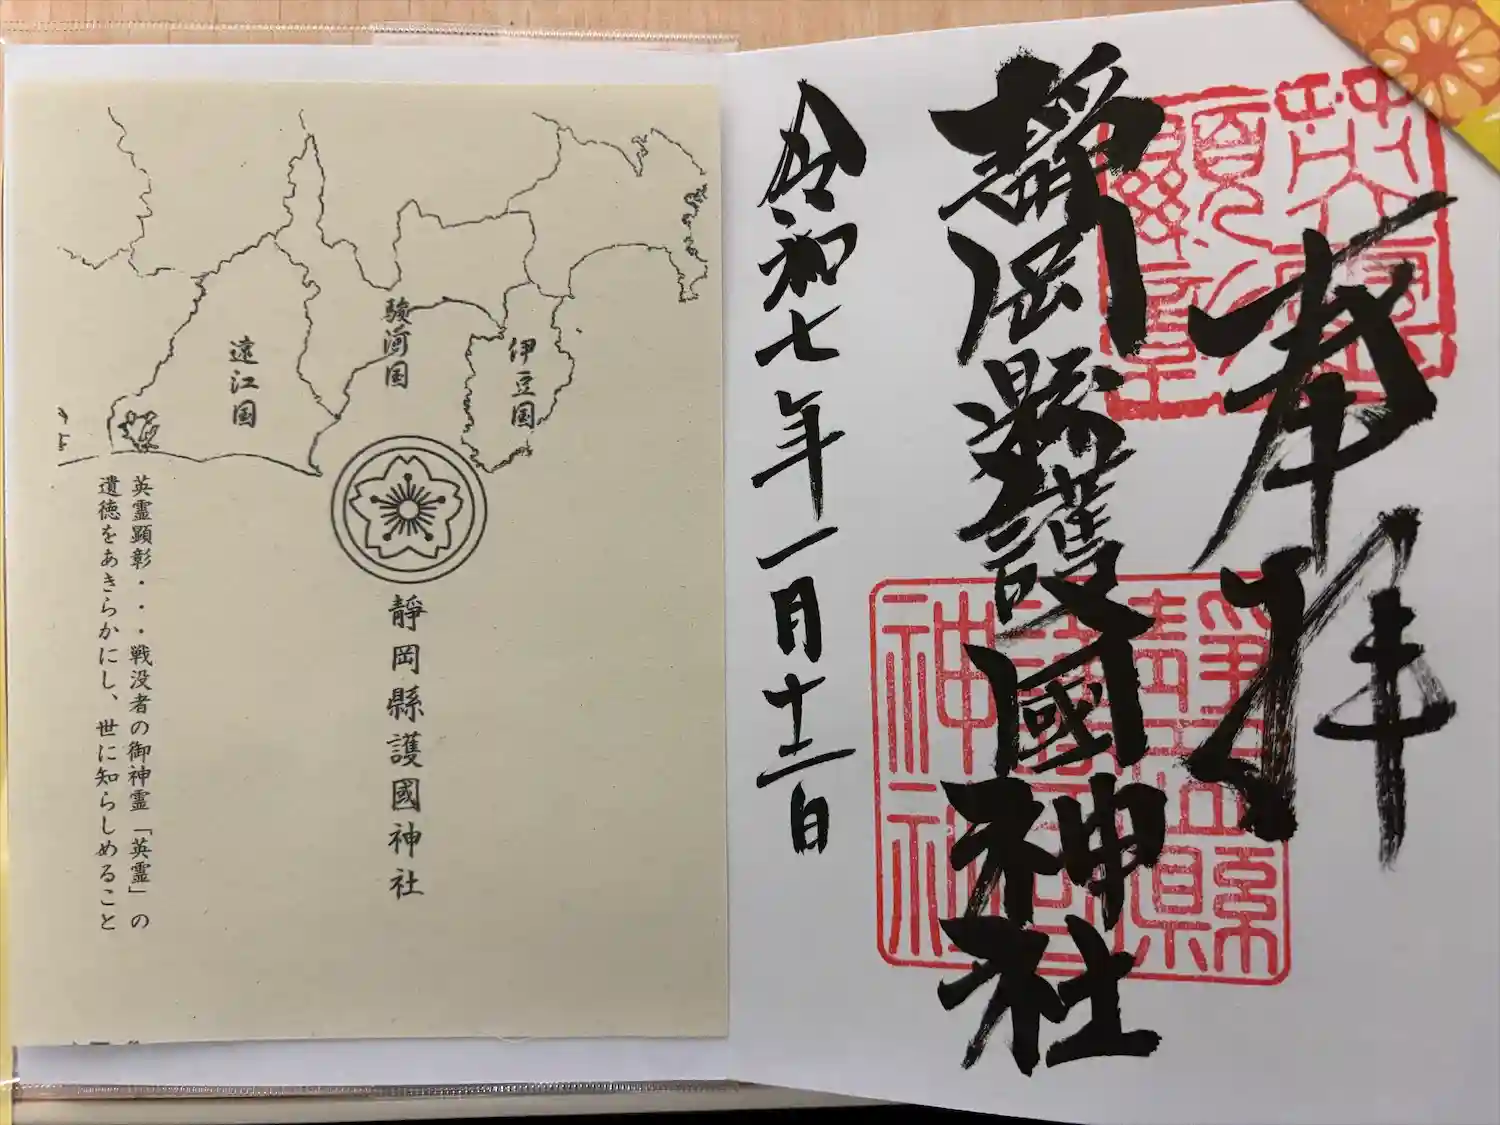 英靈
顯彰
奉拝
靜岡縣護國神社
靜岡縣
護國
神社
令和七年一月十二日
伊豆国
駿河国
遠江国
靜岡縣護國神社
英霊顕彰・・・戦没者の御神霊「英霊」の
遺徳をあきらかにし、世に知らしめること